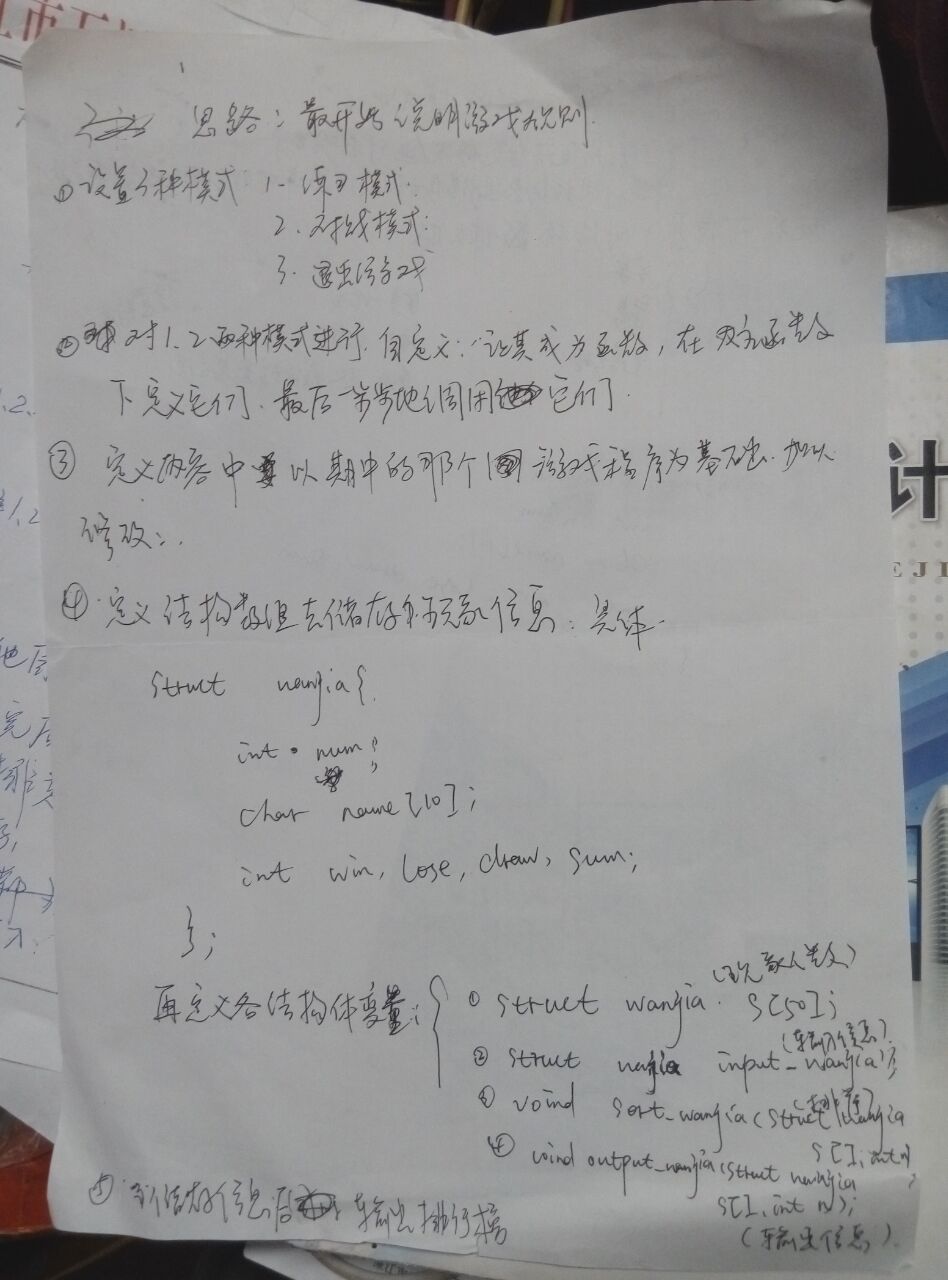 思路：最开始说明游戏规则.
①设置3种模式 1. 练习模式.
2. 对战模式.
3. 退出游戏
② 对1.2两种模式进行自定义：让其成为函数，在主函数
下定义它们.最后一步步地调用它们.
③ 定义内容中以期中的那个游戏程序为基础.加以
修改：.
④.定义结构数组去储存玩家信息：具体.
struct wanjia{
int num;
char name[10];
int win, lose, draw, sum;
};
再定义各结构体变量：
(玩家人数)
① struct wanjia s[50];
(输入信息)
② struct wanjia input_wanjia();
(排序)
③ voind sort_wanjia(struct wanjia
s[], int n)
④ voind output_wanjia(struct wanjia
s[], int n);
(输出信息)
储存信息后输出排行榜
计
EJI